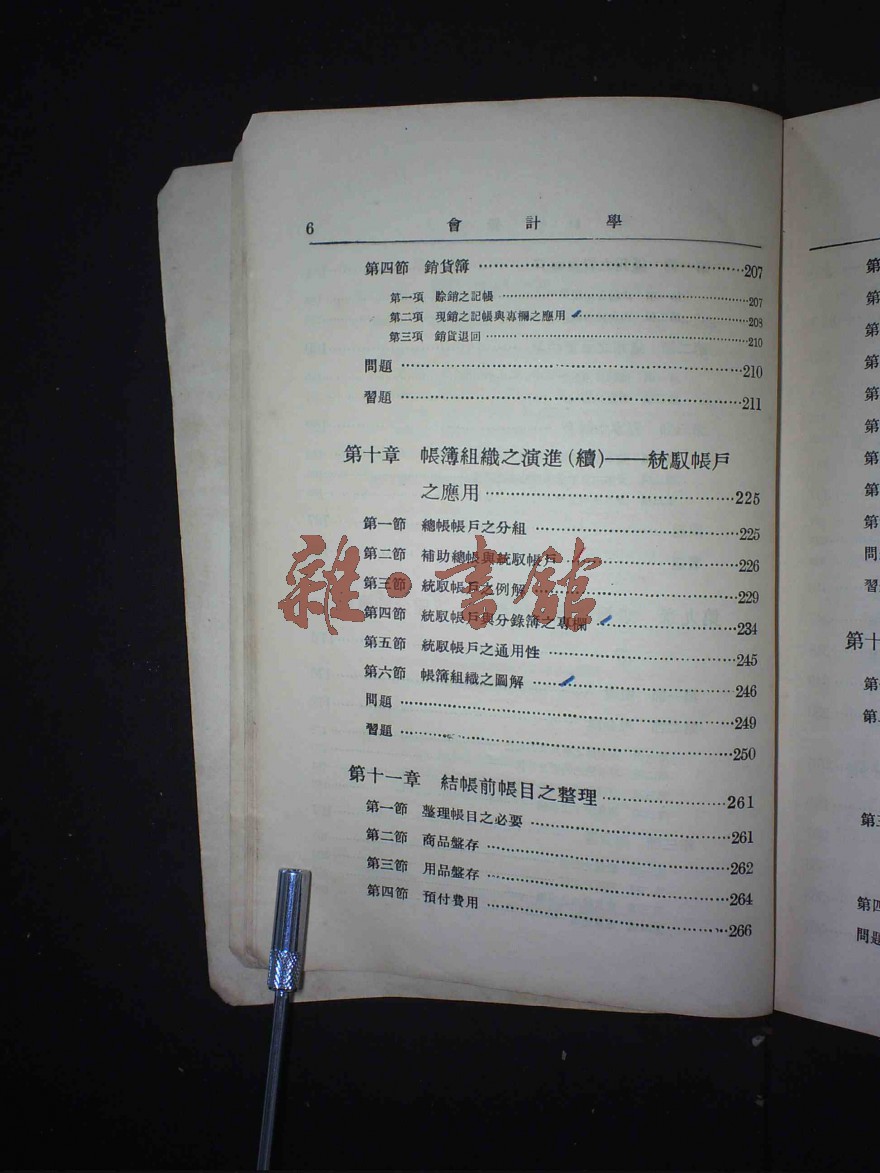 6 會計學
第四節 銷貨簿 207
第一項 賒銷之記帳 207
第二項 現銷之記帳與專欄之應用 208
第三項 銷貨退回 210
問題 210
習題 211
第十章 帳簿組織之演進(續)——統馭帳戶
之應用 225
第一節 總帳帳戶之分組 225
第二節 補助總帳與統馭帳戶 226
第三節 統馭帳戶之例解 229
第四節 統馭帳戶與分錄簿之專欄 234
第五節 統馭帳戶之通用性 245
第六節 帳簿組織之圖解 246
問題 249
習題 250
第十一章 結帳前帳目之整理 261
第一節 整理帳目之必要 261
第二節 商品盤存 262
第三節 用品盤存 264
第四節 預付費用 266
雜·書館
第
第
第
第
第
第
第
第
第
問
習
第十
第
第
第
第四
問題